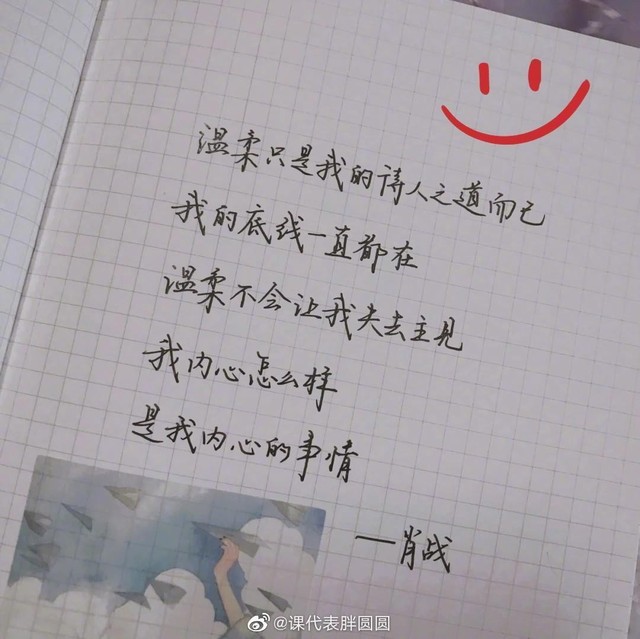 温柔只是我的诗人之道而已
我的底线一直都在
温柔不会让我失去主见
我内心怎么样
是我内心的事情
—肖战
@课代表胖圆圆